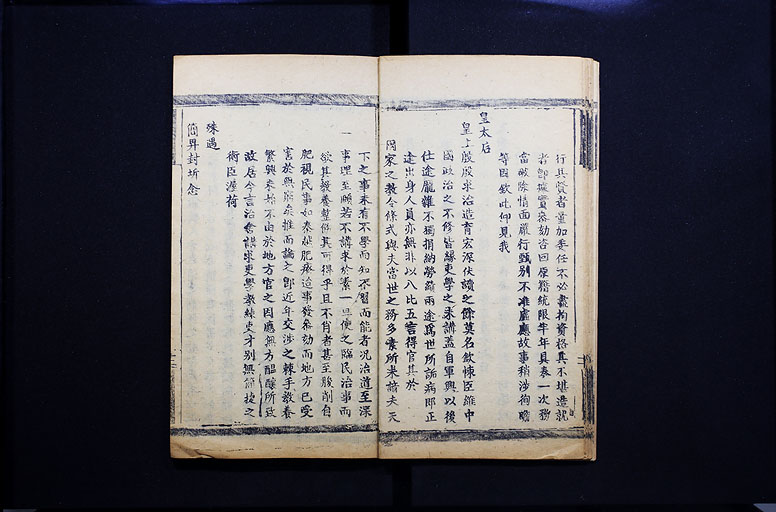 行其賢者量加委任不必盡拘資格其不堪造就
者即據實咨劾咨回原籍統限半年具奏一次務
當破除情面嚴行甄別不准虛應故事稍涉徇瞻
等因欽此仰見我
皇太后
皇上殷殷求治造育宏深伏讀之餘莫名欽悚臣維中
國政治之不修皆緣吏學之未講蓋自軍興以後
仕途龐雜不獨捐納勞績兩途為世所詬病即正
途出身人員亦無非以八比五言得官其於
國家之教令條式與夫當世之務多素所未諳夫天
下之事未有不學而知不習而能者況治道至深
事理至賾若不講求於素一旦使之臨民治事而
欲其教養整飭其可得乎且不肖者甚至朘削自
肥視民事如秦越肥瘠迨事發參劾而地方已受
害於無窮矣推而論之即近年交涉之棘手教養
繁興未始不由於地方官之因應無方醞釀所致
故居今言治舍講求吏學教練吏才別無簡捷之
術臣渥荷
殊遇
簡畀封圻念